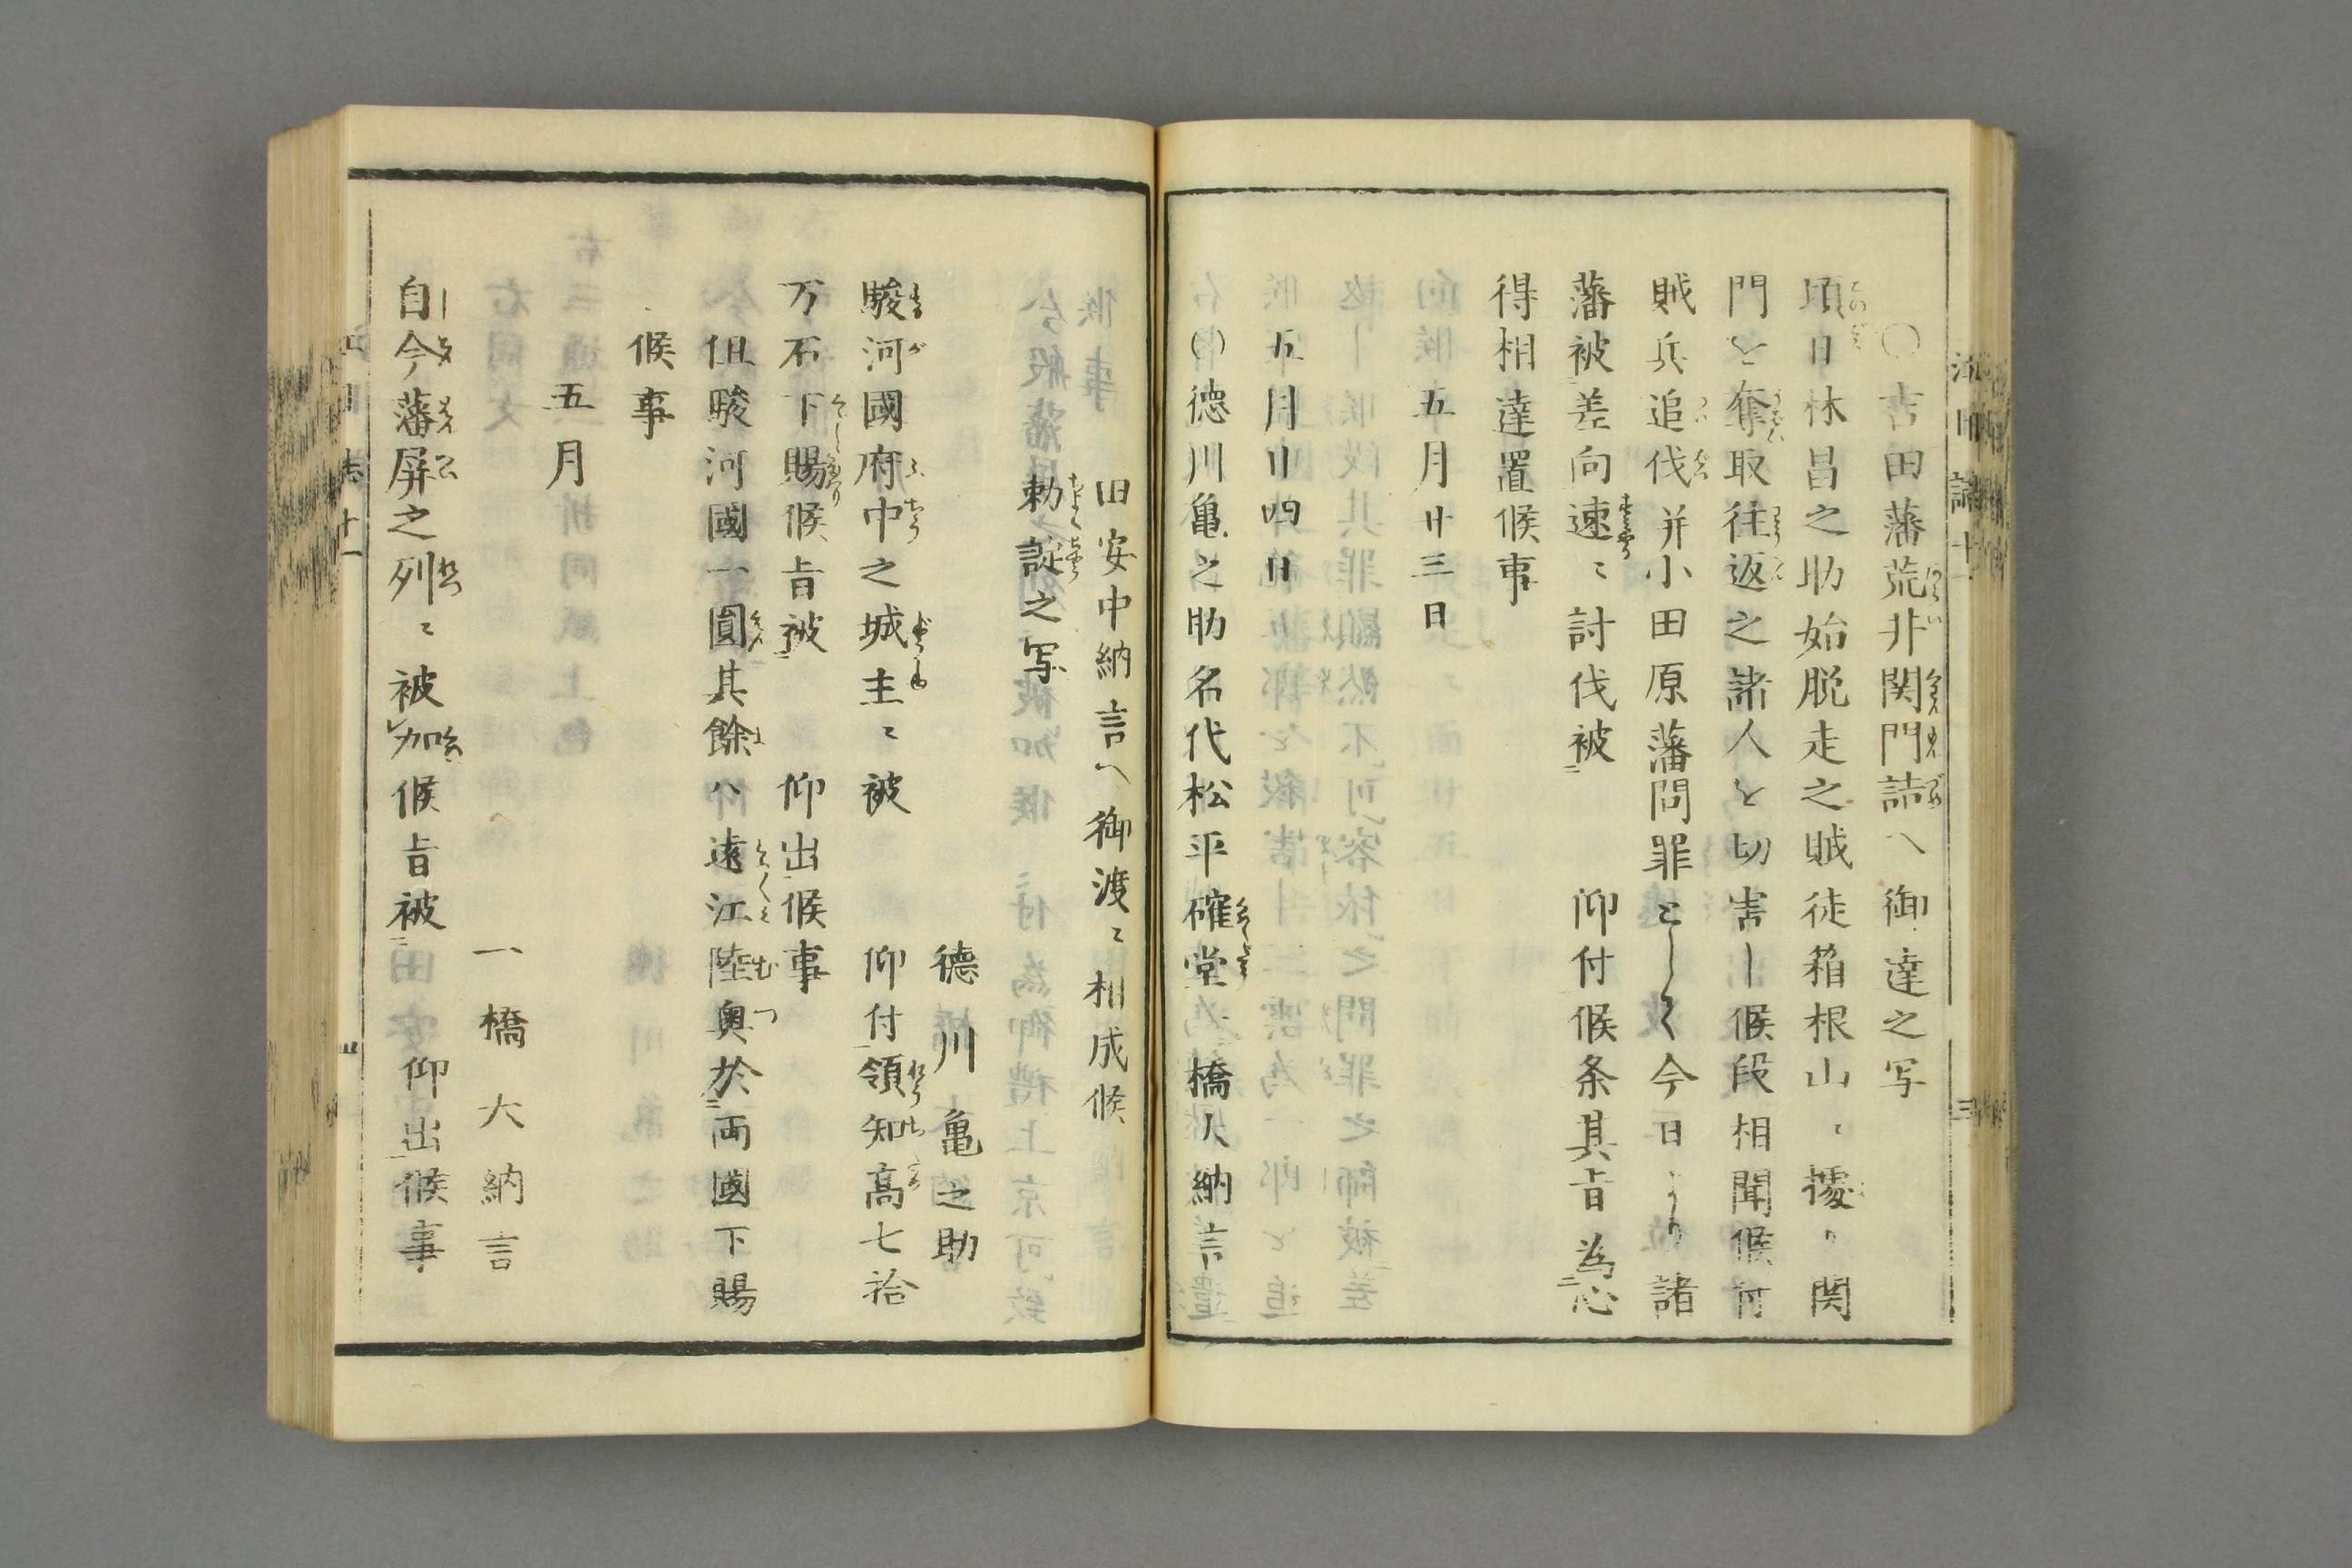 〇吉田藩荒井関門詰へ御達之写
頃日林昌之助始脱走之賊徒箱根山ニ據リ関
門を奪取往返之諸人を切害し候段相聞候付
賊兵追伐并小田原藩問罪として今日より諸
藩被差向速ニ討伐被　仰付候条其旨為心
得相達置候事
五月廿三日
五月廿四日
〇徳川亀之助名代松平確堂一橋大納言
田安中納言へ御渡ニ相成候
勅諚之写
徳川亀之助
駿河國府中之城主ニ被　仰付領知高七拾
万石下賜候旨被　仰出候事
但駿河國一圓其餘ハ遠江陸奥於両國下賜
候事
五月
一橋大納言
自今藩屏之列ニ被加候旨被　仰出候事